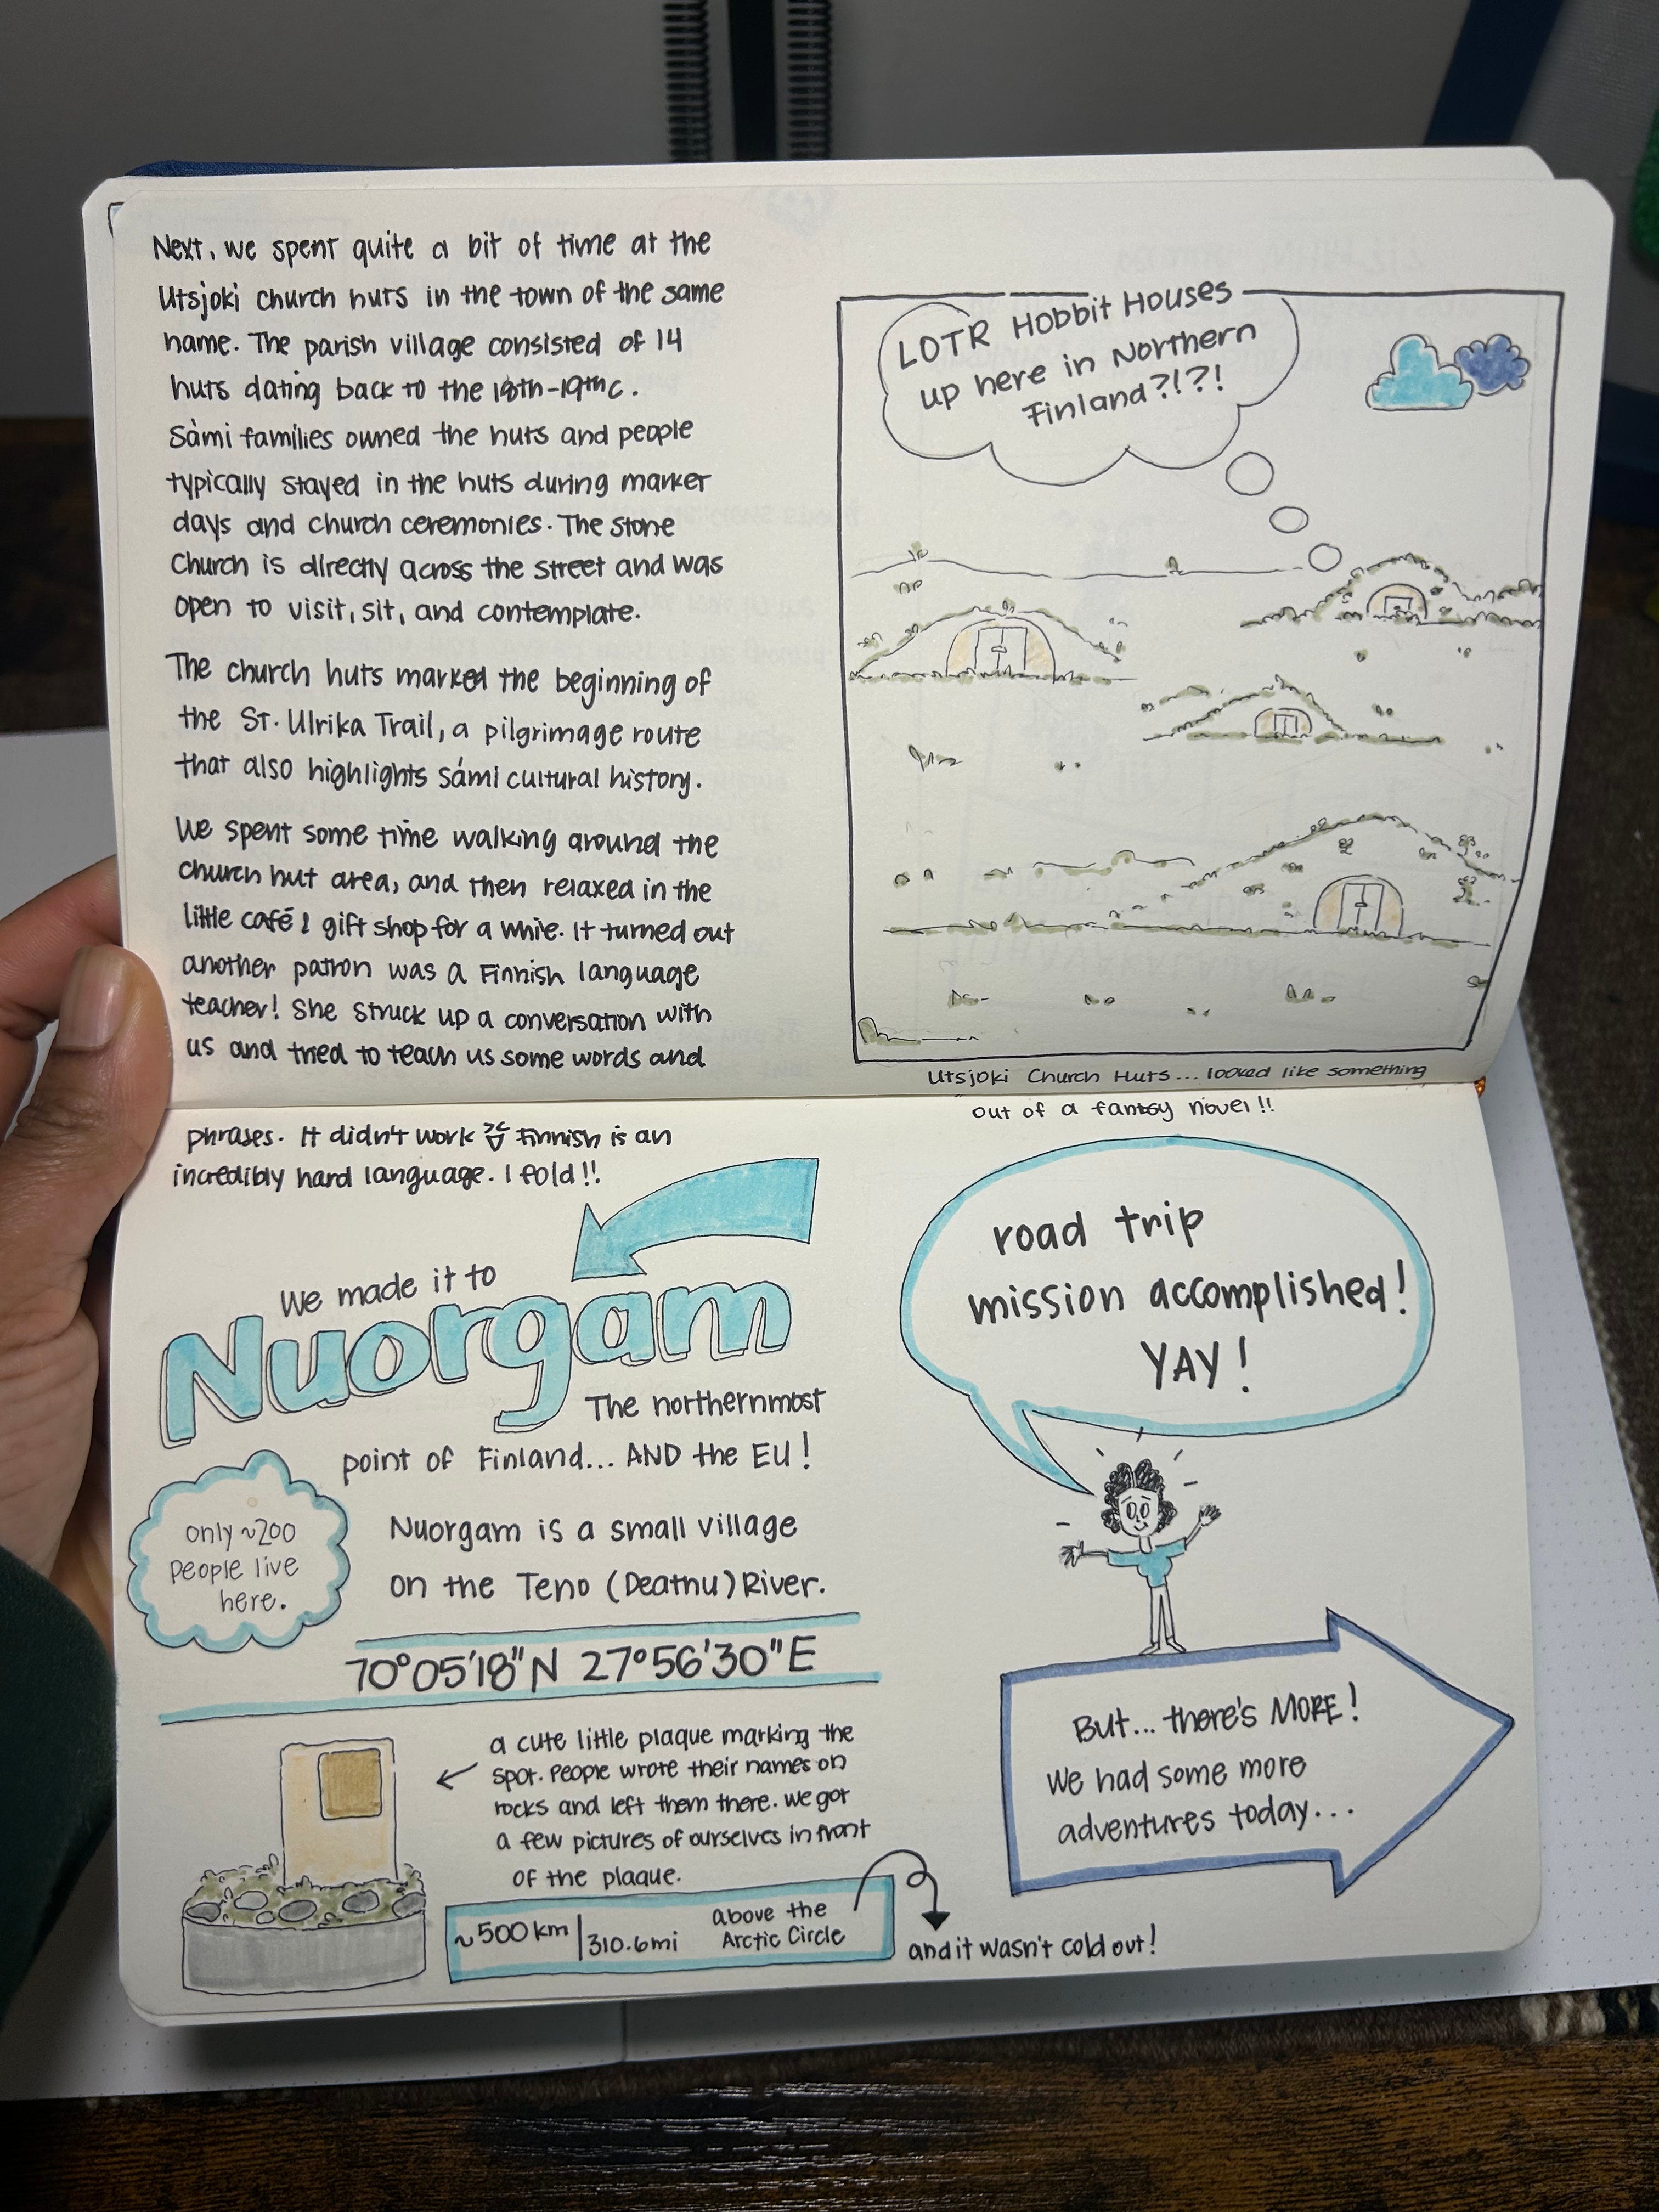 Next, we spent quite a bit of time at the
Utsjoki church huts in the town of the same
name. The parish village consisted of 14
huts dating back to the 18th-19th c.
Sàmi families owned the huts and people
typically stayed in the huts during market
days and church ceremonies. The stone
church is directly across the street and was
open to visit, sit, and contemplate.
The church huts marked the beginning of
the St. Ulrika Trail, a pilgrimage route
that also highlights Sámi cultural history.
We spent some time walking around the
church hut area, and then relaxed in the
little café & gift shop for a while. It turned out
another patron was a Finnish language
teacher! She struck up a conversation with
us and tried to teach us some words and
phrases. It didn't work Finnish is an
incredibly hard language. I fold!!
LOTR Hobbit Houses
up here in Northern
Finland?!?!
Utsjoki Church Huts... looked like something
out of a fantasy novel!!
We made it to
Nuorgam
The northernmost
point of Finland... AND the EU!
only ~200
people live
here.
Nuorgam is a small village
on the Teno (Deatnu) River.
70°05'18"N 27°56'30"E
a cute little plaque marking the
spot. People wrote their names on
rocks and left them there. We got
a few pictures of ourselves in front
of the plaque.
~500 km | 310.6 mi above the
Arctic Circle
and it wasn't cold out!
road trip
mission accomplished!
YAY!
But... there's MORE!
We had some more
adventures today...